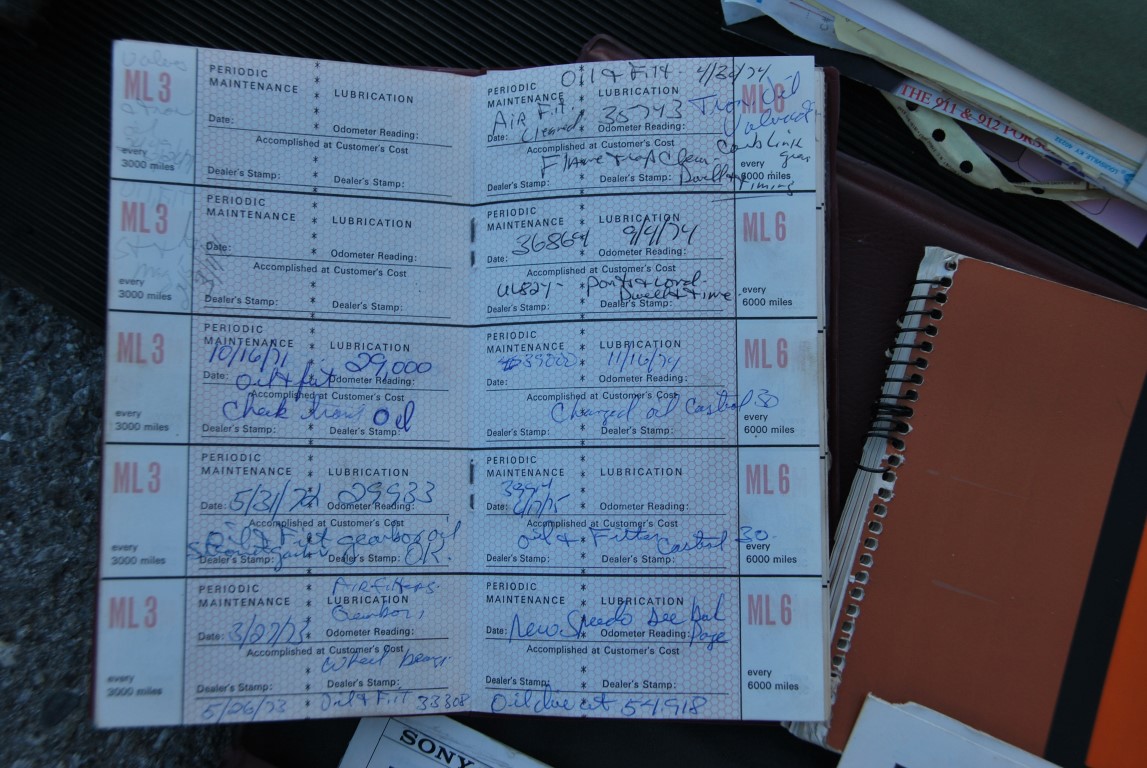 ML 3
every
3000 miles
PERIODIC
MAINTENANCE
LUBRICATION
Date:
Odometer Reading:
Accomplished at Customer's Cost
Dealer's Stamp:
Dealer's Stamp:
ML 3
every
3000 miles
PERIODIC
MAINTENANCE
LUBRICATION
Date:
Odometer Reading:
Accomplished at Customer's Cost
Dealer's Stamp:
Dealer's Stamp:
ML 3
every
3000 miles
PERIODIC
MAINTENANCE
LUBRICATION
10/16/71 29,000
Date:
Odometer Reading:
Oil &
Accomplished at Customer's Cost
Check Oil
Dealer's Stamp:
Dealer's Stamp:
ML 3
every
3000 miles
PERIODIC
MAINTENANCE
LUBRICATION
Date: 5/31/72 29933
Odometer Reading:
Accomplished at Customer's Cost
Oil & Filt gearbox oil
OK.
Dealer's Stamp:
Dealer's Stamp:
ML 3
every
3000 miles
Air Filters
PERIODIC
MAINTENANCE
LUBRICATION
Gearbox
Date: 3/27/73
Odometer Reading:
Accomplished at Customer's Cost
Wheel
Dealer's Stamp:
Dealer's Stamp:
5/06/73 Oil & Filt 33308
Oil & Filt. 4/30/74
PERIODIC
MAINTENANCE
LUBRICATION
ML 6
Air Filt. 35743
Date: Cleaned
Odometer Reading:
Accomplished at Customer's Cost
Carb Link
every
6000 miles
Clean
Dealer's Stamp:
Dealer's Stamp:
Dwell & Timing
PERIODIC
MAINTENANCE
LUBRICATION
ML 6
36864 9/4/74
Date:
Odometer Reading:
Accomplished at Customer's Cost
Points & Cond.
Dwell & Time
Dealer's Stamp:
Dealer's Stamp:
every
6000 miles
PERIODIC
MAINTENANCE
LUBRICATION
ML 6
39000 11/16/74
Date:
Odometer Reading:
Accomplished at Customer's Cost
Changed oil Castrol 30
Dealer's Stamp:
Dealer's Stamp:
every
6000 miles
PERIODIC
MAINTENANCE
LUBRICATION
ML 6
Date:
Odometer Reading:
Accomplished at Customer's Cost
Oil & Filter Castrol 30
Dealer's Stamp:
Dealer's Stamp:
every
6000 miles
PERIODIC
MAINTENANCE
LUBRICATION
ML 6
Date: New Speedo See
Odometer Reading:
Page
Accomplished at Customer's Cost
Dealer's Stamp:
Dealer's Stamp:
every
6000 miles
Oil due at 54,918
THE 911 & 912
SONY